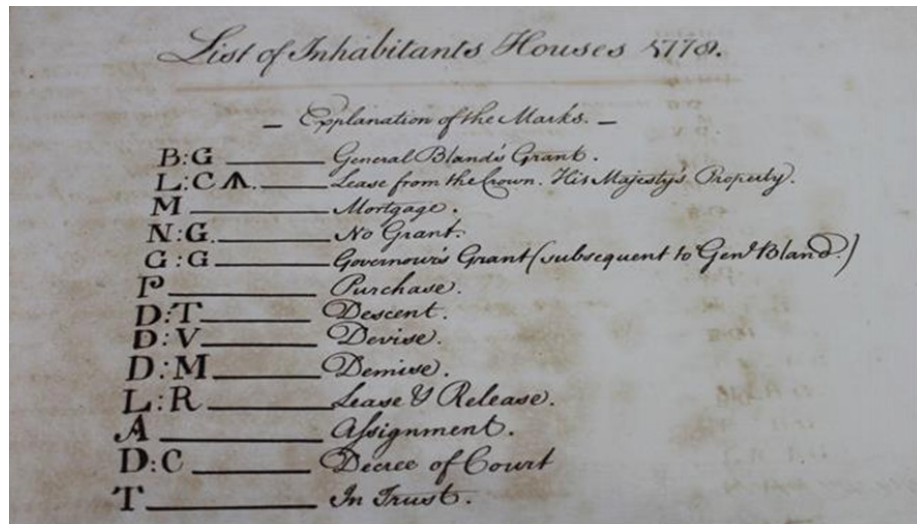 List of Inhabitants Houses 1778.
— Explanation of the Marks. —
B:G ——— General Bland's Grant.
L:C ——— Lease from the Crown. His Majesty's Property.
M ——— Mortgage.
N:G. ——— No Grant.
G:G ——— Governour's Grant (subsequent to Genl Bland.)
P ——— Purchase.
D:T ——— Descent.
D:V ——— Devise.
D:M ——— Demise.
L:R ——— Lease & Release.
A ——— Assignment.
D:C ——— Decree of Court
T ——— In Trust.